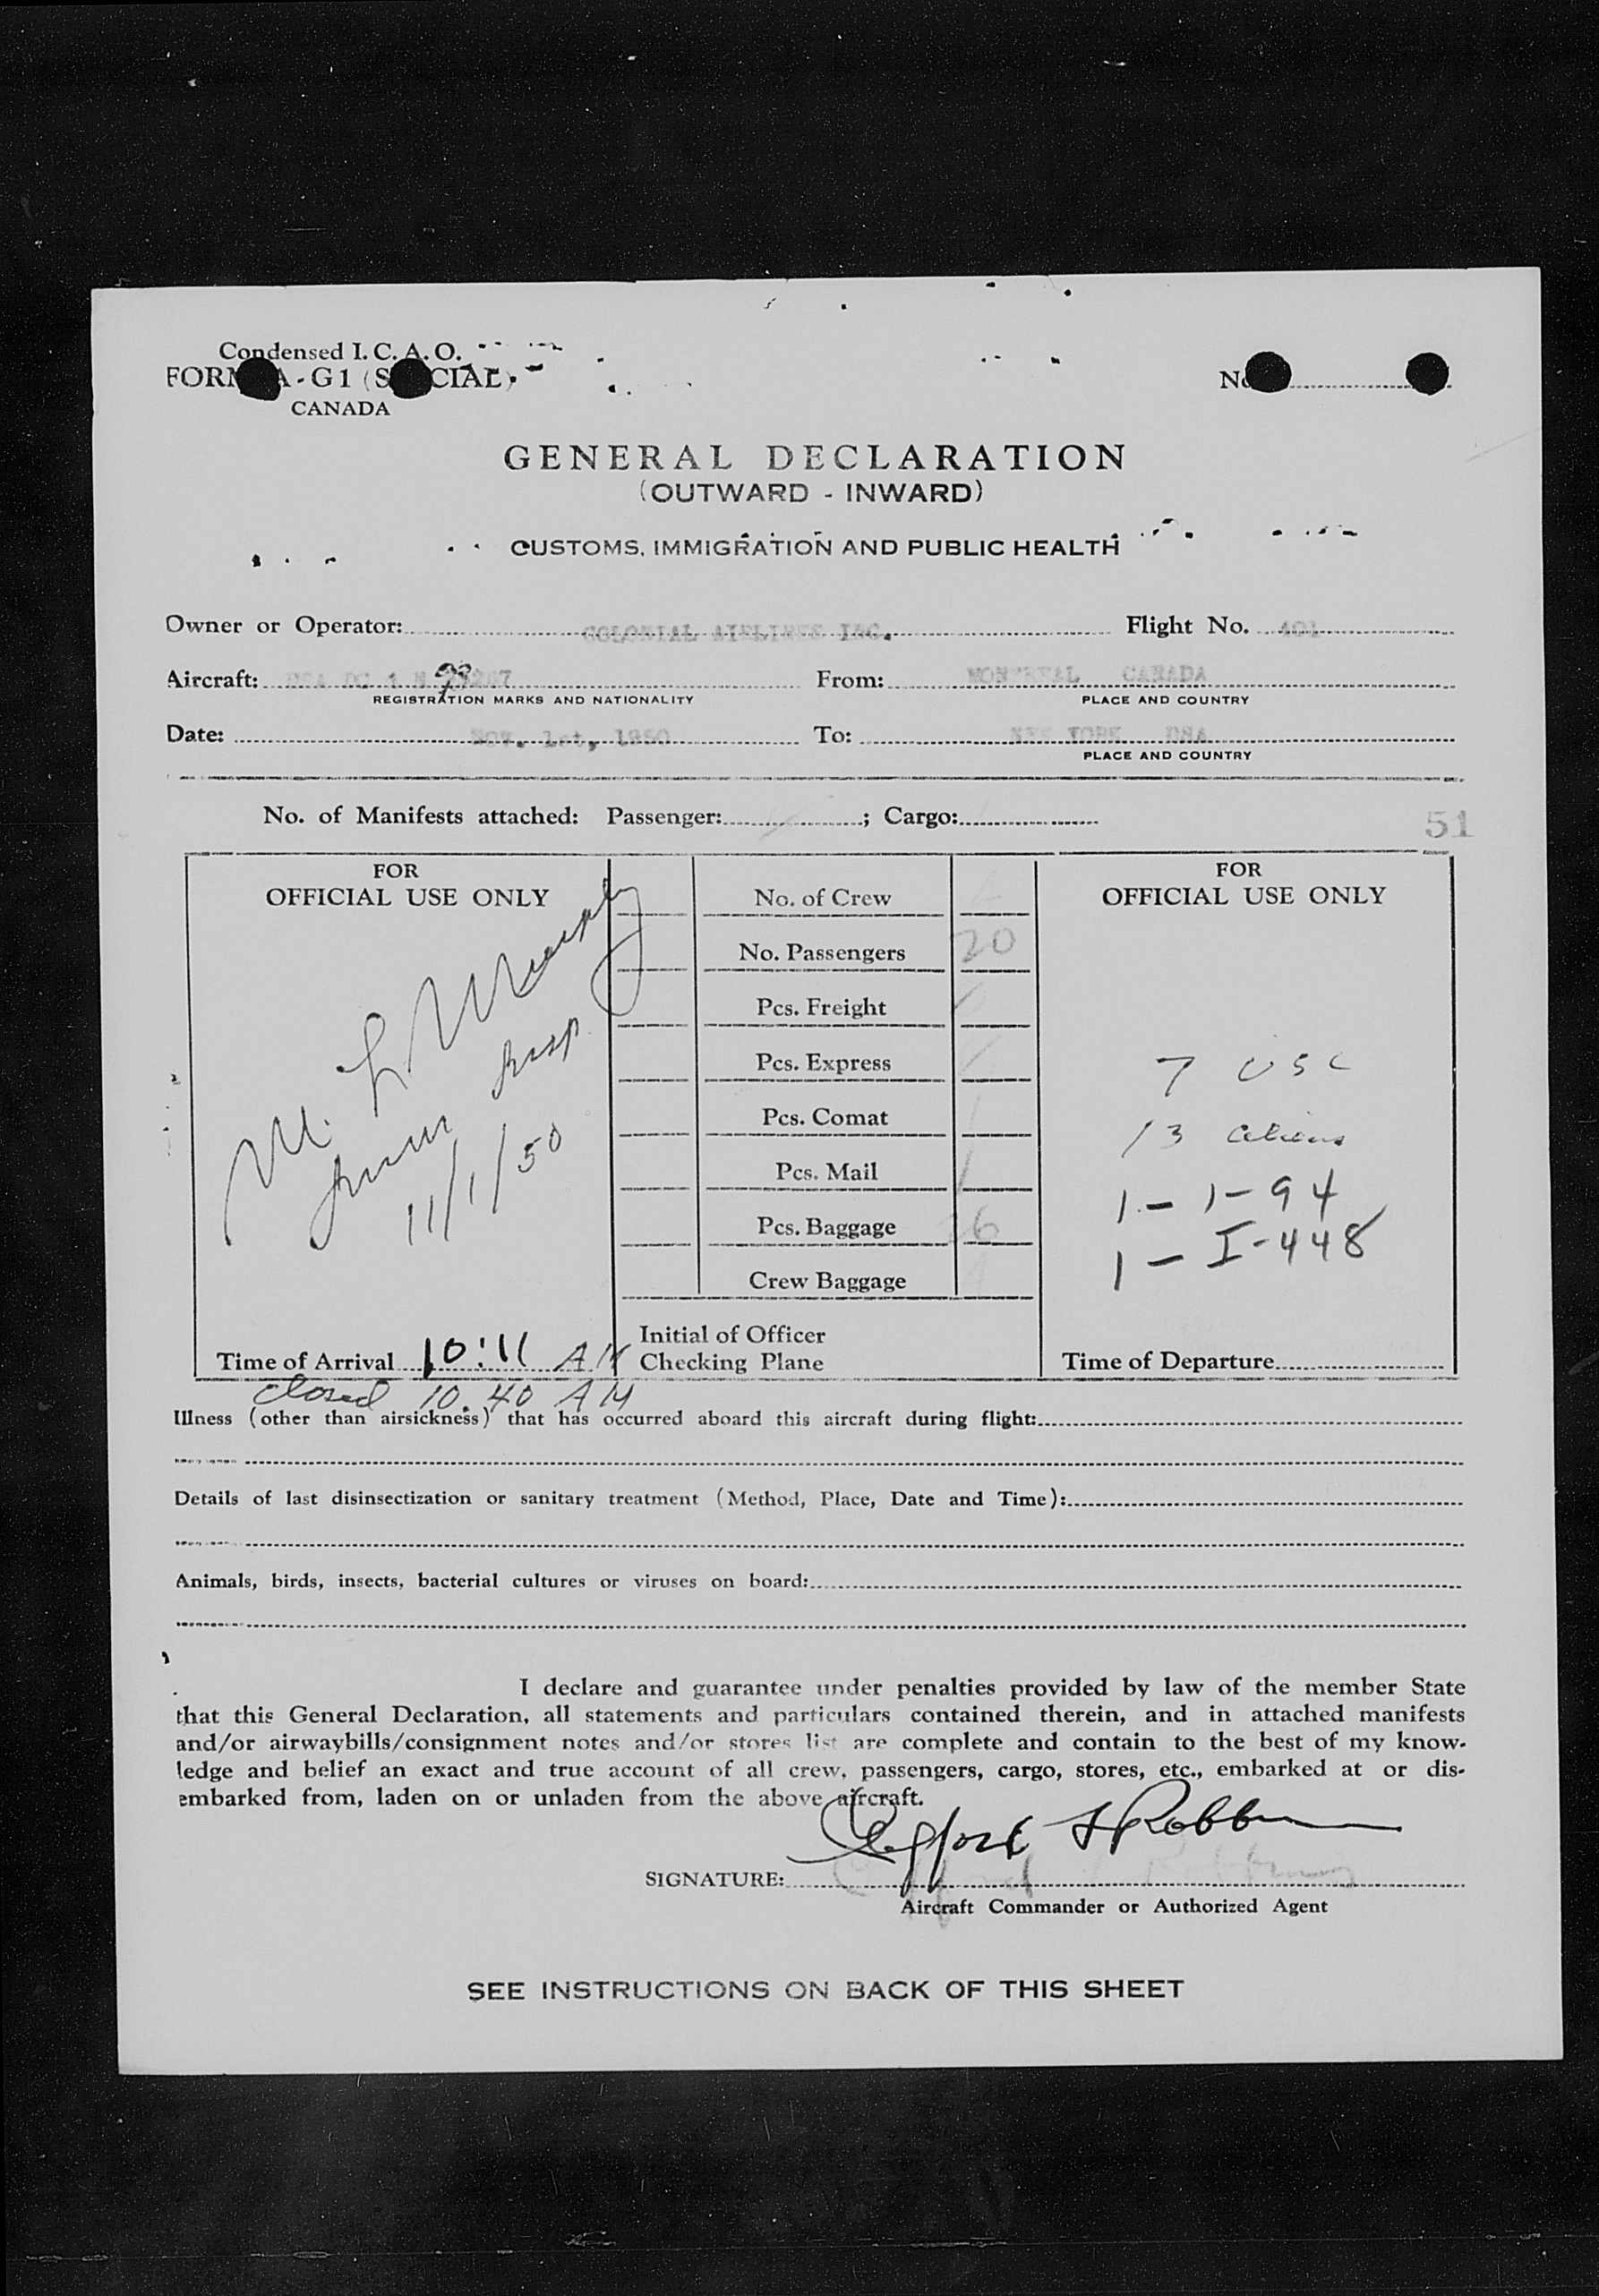 Condensed I. C. A. O.
CANADA
GENERAL DECLARATION
(OUTWARD - INWARD)
CUSTOMS, IMMIGRATION AND PUBLIC HEALTH
Owner or Operator: COLONIAL AIRLINES INC. Flight No. 401
Aircraft: From: MONTREAL CANADA
REGISTRATION MARKS AND NATIONALITY PLACE AND COUNTRY
Date: NOV. 1st, 1950 To: NEW YORK USA
PLACE AND COUNTRY
No. of Manifests attached: Passenger: ; Cargo:
51
FOR
OFFICIAL USE ONLY
M. L Murphy
Imm Insp.
11/1/50
Time of Arrival 10:11 AM
closed 10.40 AM
No. of Crew
No. Passengers 20
Pcs. Freight
Pcs. Express
Pcs. Comat
Pcs. Mail
Pcs. Baggage
Crew Baggage
Initial of Officer
Checking Plane
FOR
OFFICIAL USE ONLY
7 USC
13 aliens
1 - I-94
1 - I-448
Time of Departure
Illness (other than airsickness) that has occurred aboard this aircraft during flight:
Details of last disinsectization or sanitary treatment (Method, Place, Date and Time):
Animals, birds, insects, bacterial cultures or viruses on board:
I declare and guarantee under penalties provided by law of the member State
that this General Declaration, all statements and particulars contained therein, and in attached manifests
and/or airwaybills/consignment notes and/or stores list are complete and contain to the best of my know-
ledge and belief an exact and true account of all crew, passengers, cargo, stores, etc., embarked at or dis-
embarked from, laden on or unladen from the above aircraft.
SIGNATURE:
Aircraft Commander or Authorized Agent
SEE INSTRUCTIONS ON BACK OF THIS SHEET